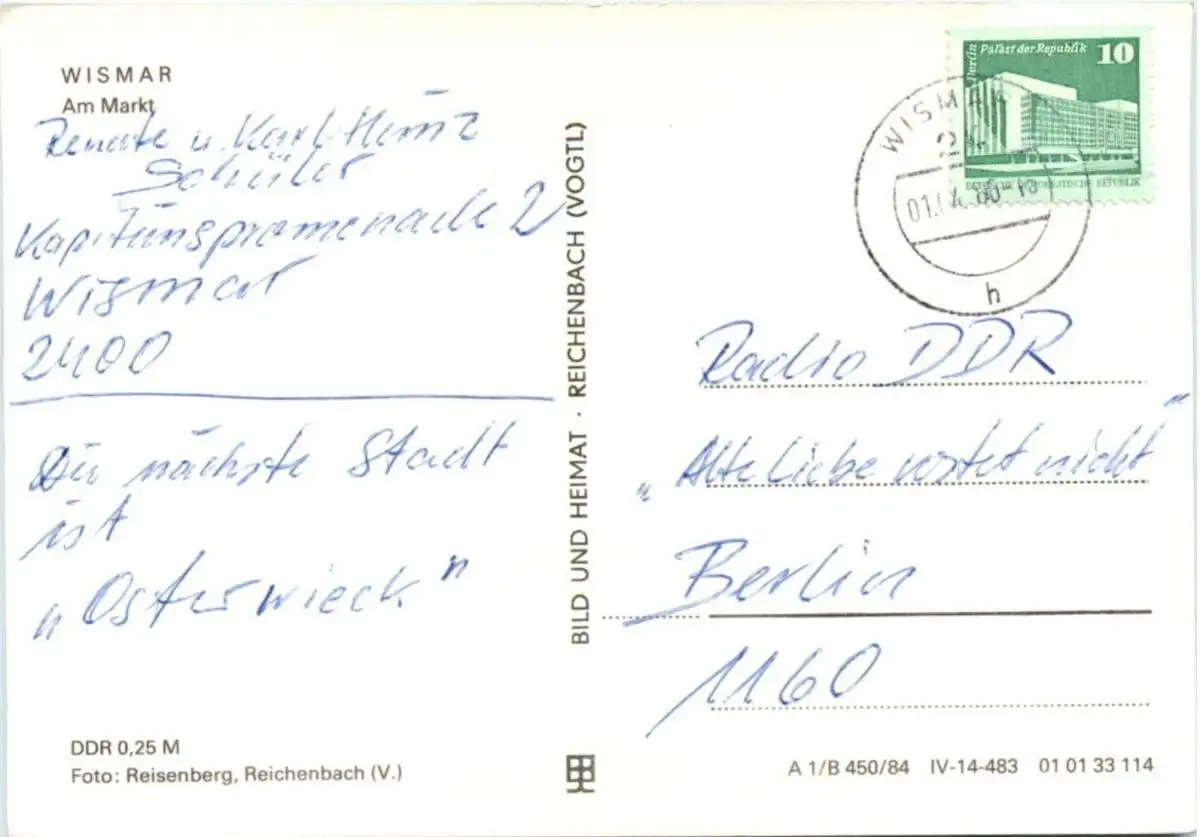 WISMAR
Am Markt
Renate u. Karl-Heinz
Schüler
Kapitänspromenade 2
Wismar
2400
Die nächste Stadt
ist
„Osterwieck"
DDR 0,25 M
Foto: Reisenberg, Reichenbach (V.)
BILD UND HEIMAT · REICHENBACH (VOGTL)
Berlin Palast der Republik 10
DEUTSCHE DEMOKRATISCHE REPUBLIK
WISMAR
h
Radio DDR
„Alte Liebe rostet nicht"
Berlin
1160
A 1/B 450/84 IV-14-483 01 01 33 114